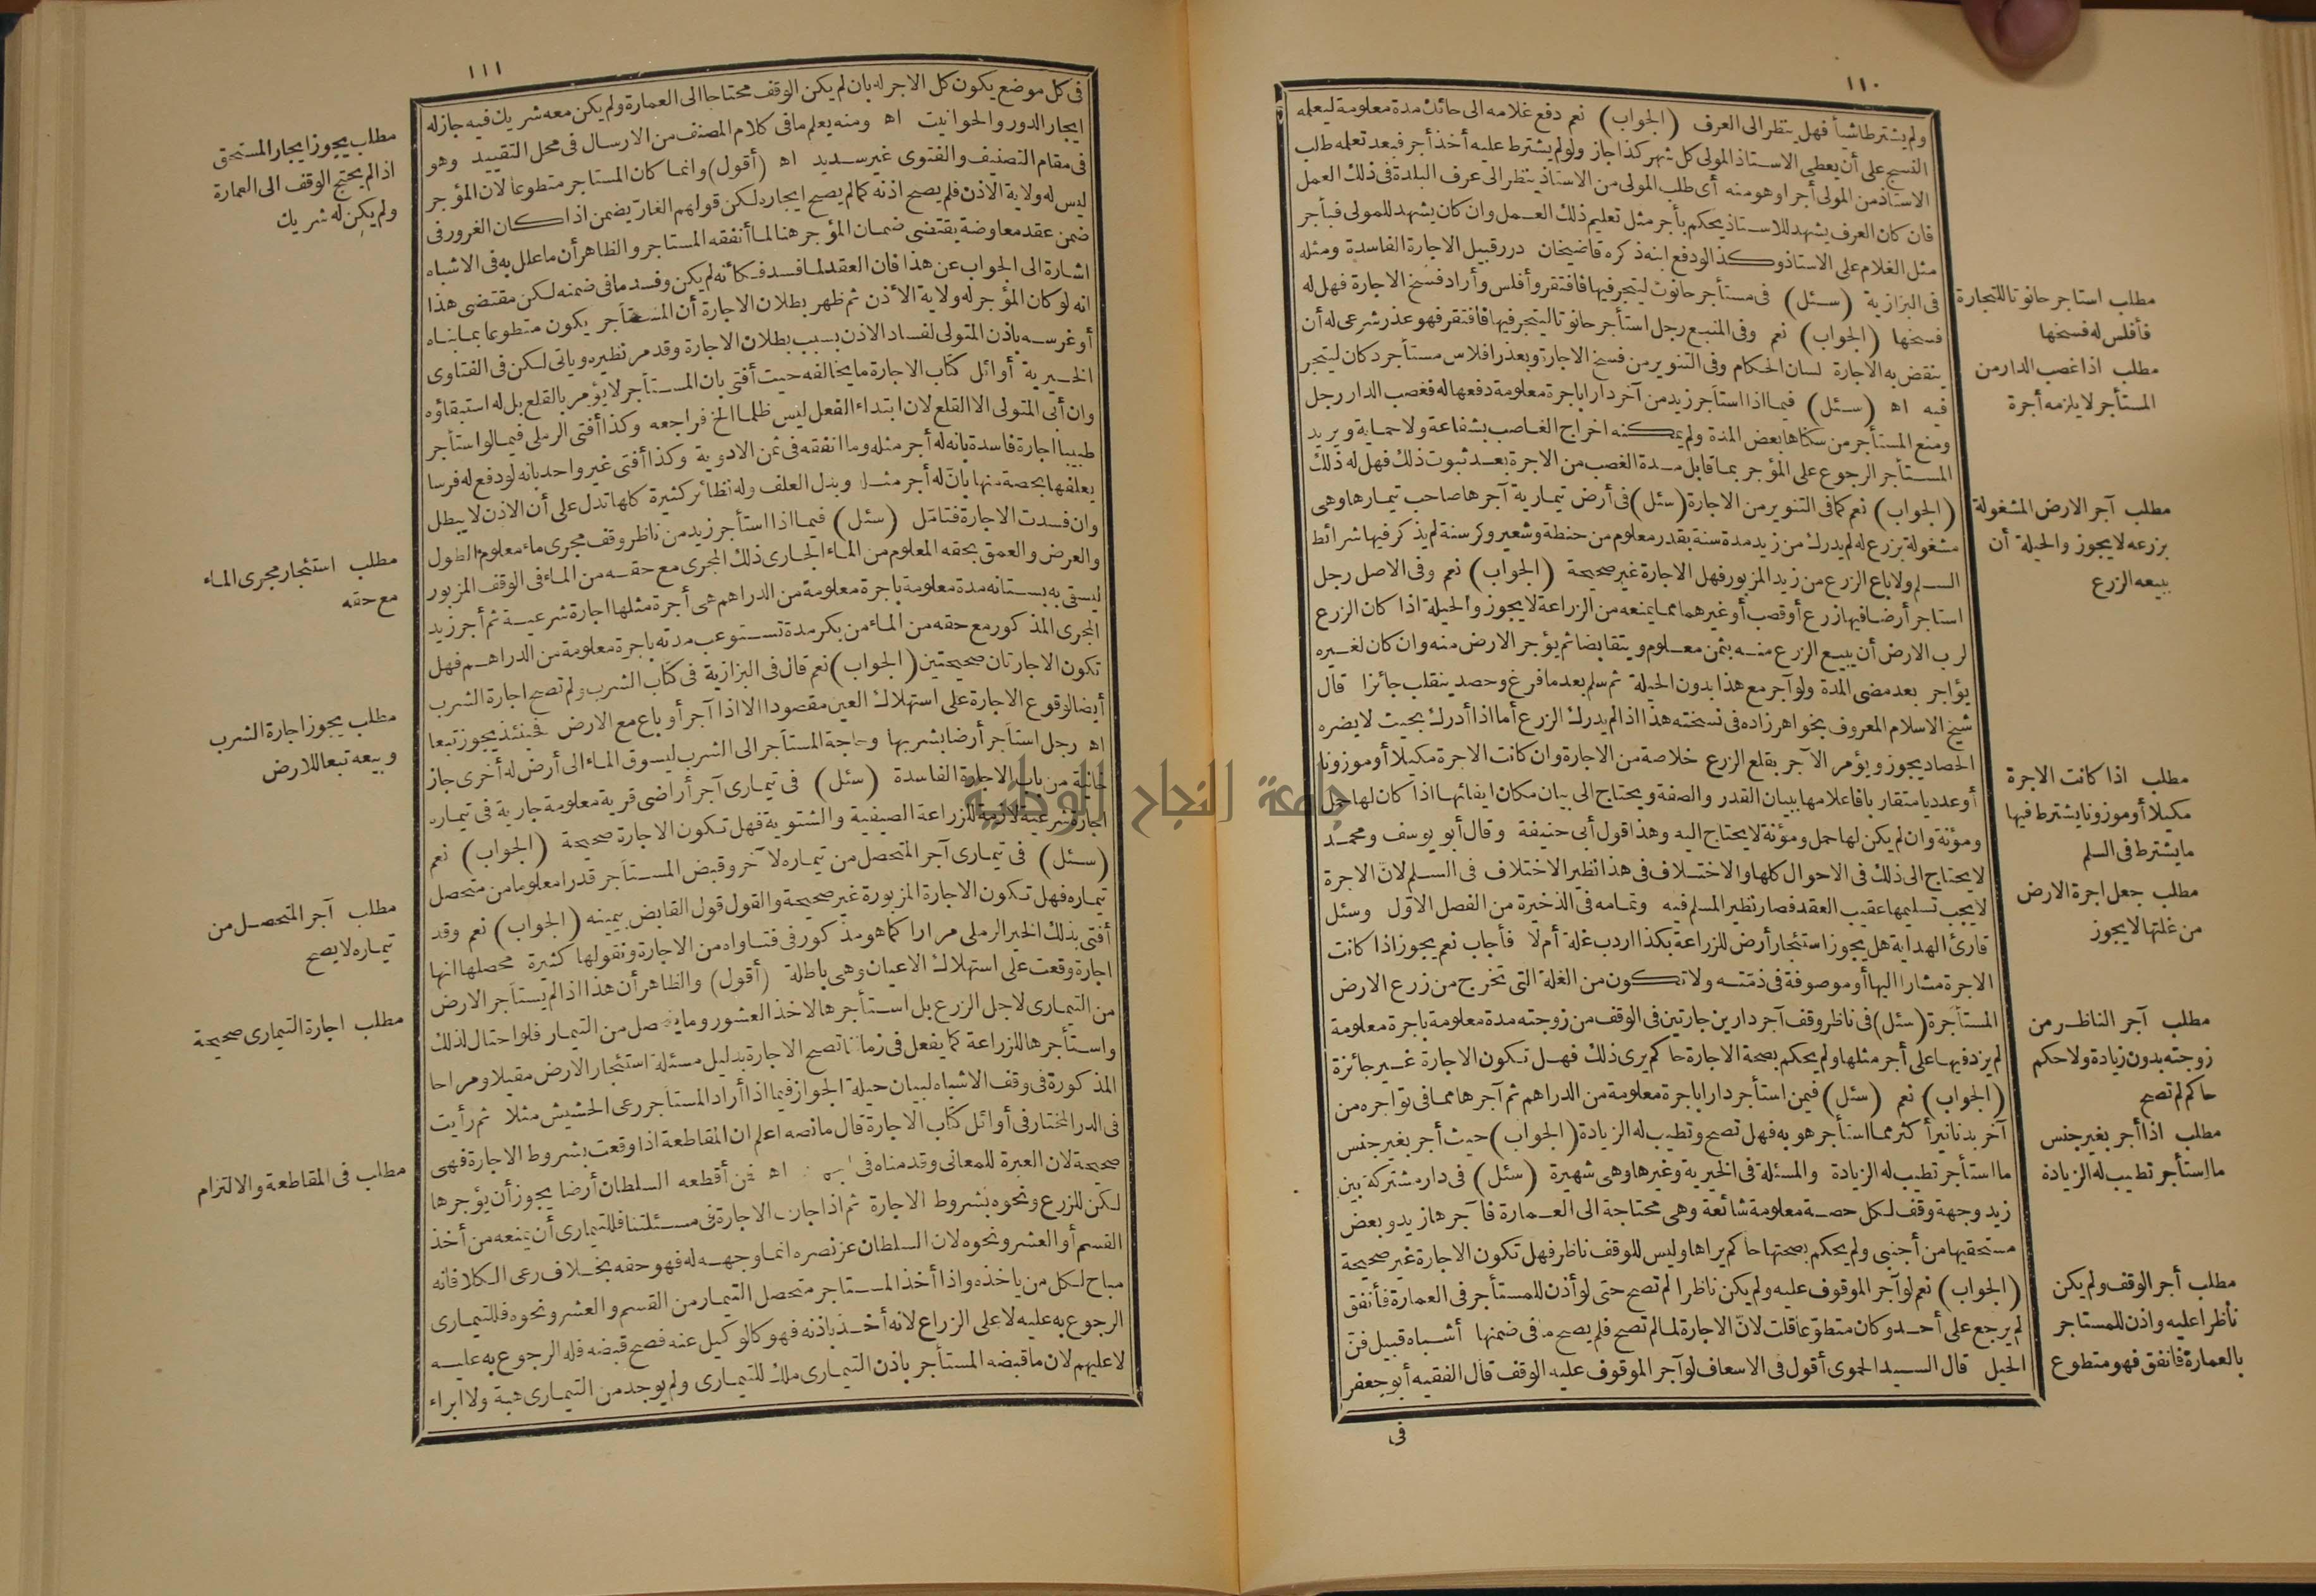 ١١٠
ولم يشترطا شيأ فهل ينظر الى العرف (الجواب) نعم دفع غلامه الى حائك مدة معلومة ليعلمه
النسج على أن يعطى الاستاذ المولى كل شهر كذا جاز ولو لم يشترط عليه أخذ أجر فبعد تعلمه طلب
الاستاذ من المولى أجرا وهو منه أى طلب المولى من الاستاذ ينظر الى عرف البلدة فى ذلك العمل
فان كان العرف يشهد للاستاذ يحكم بأجر مثل تعليم ذلك العمل وان كان يشهد للمولى فبأجر
مثل الغلام على الاستاذ وكذا لو دفع ابنه ذكره قاضيخان درر قبيل الاجارة الفاسدة ومثله
فى البزازية (سئل) فى مستأجر حانوت ليتجر فيها فافتقر وأفلس وأراد فسخ الاجارة فهل له
فسخها (الجواب) نعم وفى المنبع رجل استأجر حانوتا ليتجر فيها فافتقر فهو عذر شرعى له أن
ينقض به الاجارة لسان الحكام وفى التنوير من فسخ الاجارة وبعذر افلاس مستأجر دكان ليتجر
فيه اه (سئل) فيما اذا استأجر زيد من آخر دارا باجرة معلومة دفعها له فغصب الدار رجل
ومنع المستأجر من سكناها بعض المدة ولم يمكنه اخراج الغاصب بشفاعة ولا حماية ويريد
المستأجر الرجوع على المؤجر بما قابل مدة الغصب من الاجرة بعد ثبوت ذلك فهل له ذلك
(الجواب) نعم كما فى التنوير من الاجارة (سئل) فى أرض تيمارية آجرها صاحب تيمارها وهى
مشغولة بزرع له لم يدرك من زيد مدة سنة بقدر معلوم من حنطة وشعير وكرسنة لم يذكر فيها شرائط
السلم ولا باع الزرع من زيد المزبور فهل الاجارة غير صحيحة (الجواب) نعم وفى الاصل رجل
استاجر أرضا فيها زرع أو قصب أو غيرهما مما يمنعه من الزراعة لا يجوز والحيلة اذا كان الزرع
لرب الارض أن يبيع الزرع منه بثمن معلوم ويتقابضا ثم يؤجر الارض منه وان كان لغيره
يؤاجر بعد مضى المدة ولو آجر مع هذا بدون الحيلة ثم سلم بعد ما فرغ وحصد ينقلب جائزا قال
شيخ الاسلام المعروف بخواهر زاده فى نسخته هذا اذا لم يدرك الزرع أما اذا أدرك بحيث لا يضره
الحصاد يجوز ويؤمر الآجر بقلع الزرع خلاصة من الاجارة وان كانت الاجرة مكيلا أو موزونا
أو عدديا متقاربا فاعلامها ببيان القدر والصفة ويحتاج الى بيان مكان ايفائها اذا كان لها حمل
ومؤنة وان لم يكن لها حمل ومؤنة لا يحتاج اليه وهذا قول أبى حنيفة وقال أبو يوسف ومحمد
لا يحتاج الى ذلك فى الاحوال كلها والاختلاف فى هذا نظير الاختلاف فى السلم لان الاجرة
لا يجب تسليمها عقيب العقد فصار نظير المسلم فيه وتمامه فى الذخيرة من الفصل الاول وسئل
قارئ الهداية هل يجوز استئجار أرض للزراعة بكذا اردب غلة أم لا فأجاب نعم يجوز اذا كانت
الاجرة مشارا اليها أو موصوفة فى ذمته ولا تكون من الغلة التى تخرج من زرع الارض
المستأجرة (سئل) فى ناظر وقف آجر دارين جارتين فى الوقف من زوجته مدة معلومة باجرة معلومة
لم يزد فيها على أجر مثلها ولم يحكم بصحة الاجارة حاكم يرى ذلك فهل تكون الاجارة غير جائزة
(الجواب) نعم (سئل) فيمن استأجر دارا باجرة معلومة من الدراهم ثم آجرها مما فى تواجره من
آخر بدنانير أكثر مما استأجر هو به فهل تصح وتطيب له الزيادة (الجواب) حيث أجر بغير جنس
ما استأجر تطيب له الزيادة والمسئلة فى الخيرية وغيرها وهى شهيرة (سئل) فى دار مشتركة بين
زيد وجهة وقف لكل حصة معلومة شائعة وهى محتاجة الى العمارة فآجرها زيد وبعض
مستحقيها من أجنبى ولم يحكم بصحتها حاكم يراها وليس للوقف ناظر فهل تكون الاجارة غير صحيحة
(الجواب) نعم لو آجر الموقوف عليه ولم يكن ناظرا لم تصح حتى لو أذن للمستأجر فى العمارة فأنفق
لم يرجع على أحد وكان متطوعا قلت لان الاجارة لما لم تصح فلم يصح ما فى ضمنها أشباه قبيل فن
الحيل قال السيد الحموى أقول فى الاسعاف لو آجر الموقوف عليه الوقف قال الفقيه أبو جعفر
فى
مطلب استاجر حانوتا للتجارة
فأفلس له فسخها
مطلب اذا غصب الدار من
المستأجر لا يلزمه أجرة
مطلب آجر الارض المشغولة
بزرعه لا يجوز والحيلة أن
يبيعه الزرع
مطلب اذا كانت الاجرة
مكيلا أو موزونا يشترط فيها
ما يشترط فى السلم
مطلب جعل اجرة الارض
من غلتها لا يجوز
مطلب آجر الناظر من
زوجته بدون زيادة ولا حكم
حاكم لم تصح
مطلب اذا أجر بغير جنس
ما استأجر تطيب له الزيادة
مطلب أجر الوقف ولم يكن
ناظرا عليه واذن للمستاجر
بالعمارة فانفق فهو متطوع
١١١
فى كل موضع يكون كل الاجر له بان لم يكن الوقف محتاجا الى العمارة ولم يكن معه شريك فيه جاز له
ايجار الدور والحوانيت اه ومنه يعلم ما فى كلام المصنف من الارسال فى محل التقييد وهو
فى مقام التصنيف والفتوى غير سديد اه (أقول) وانما كان المستاجر متطوعا لان المؤجر
ليس له ولاية الاذن فلم يصح اذنه كما لم يصح ايجاره لكن قولهم الغار يضمن اذا كان الغرور فى
ضمن عقد معاوضة يقتضى ضمان المؤجر هنا لما أنفقه المستاجر والظاهر أن ما علل به فى الاشباه
اشارة الى الجواب عن هذا فان العقد لما فسد فكأنه لم يكن وفسد ما فى ضمنه لكن مقتضى هذا
انه لو كان المؤجر له ولاية الأذن ثم ظهر بطلان الاجارة أن المستأجر يكون متطوعا بما بناه
أو غرسه باذن المتولى لفساد الاذن بسبب بطلان الاجارة وقد مر نظيره وياتى لكن فى الفتاوى
الخيرية أوائل كتاب الاجارة ما يخالفه حيث أفتى بان المستأجر لا يؤمر بالقلع بل له استبقاؤه
وان أبى المتولى الا القلع لان ابتداء الفعل ليس ظلما الخ فراجعه وكذا أفتى الرملى فيما لو استأجر
طبيبا اجارة فاسدة بانه له أجر مثله وما انفقه فى ثمن الادوية وكذا أفتى غير واحد بانه لو دفع له فرسا
يعلفها بحصة منها بان له أجر مثله وبدل العلف وله نظائر كثيرة كلها تدل على أن الاذن لا يبطل
وان فسدت الاجارة فتامل (سئل) فيما اذا استأجر زيد من ناظر وقف مجرى ماء معلوم الطول
والعرض والعمق بحقه المعلوم من الماء الجارى ذلك المجرى مع حقه من الماء فى الوقف المزبور
ليسقى به بستانه مدة معلومة باجرة معلومة من الدراهم هى أجرة مثلها اجارة شرعية ثم أجر زيد
المجرى المذكور مع حقه من الماء من بكر مدة تستوعب مدته باجرة معلومة من الدراهم فهل
تكون الاجارتان صحيحتين (الجواب) نعم قال فى البزازية فى كتاب الشرب ولم تصح اجارة الشرب
أيضا لوقوع الاجارة على استهلاك العين مقصودا الا اذا آجر أو باع مع الارض فحينئذ يجوز تبعا
اه رجل استأجر أرضا بشربها وحاجة المستأجر الى الشرب ليسوق الماء الى أرض له أخرى جاز
خانية من باب الاجارة الفاسدة (سئل) فى تيمارى آجر أراضى قرية معلومة جارية فى تيماره
اجارة شرعية لازمة للزراعة الصيفية والشتوية فهل تكون الاجارة صحيحة (الجواب) نعم
(سئل) فى تيمارى آجر المتحصل من تيماره لآخر وقبض المستأجر قدرا معلوما من متحصل
تيماره فهل تكون الاجارة المزبورة غير صحيحة والقول قول القابض بيمينه (الجواب) نعم وقد
أفتى بذلك الخير الرملى مرارا كما هو مذكور فى فتاواه من الاجارة ونقولها كثيرة محصلها انها
اجارة وقعت على استهلاك الاعيان وهى باطلة (أقول) والظاهر أن هذا اذا لم يستأجر الارض
من التيمارى لاجل الزرع بل استأجرها لاخذ العشور وما يتحصل من التيمار فلو احتال لذلك
واستأجرها للزراعة كما يفعل فى زماننا تصح الاجارة بدليل مسئلة استئجار الارض مقيلا ومراحا
المذكورة فى وقف الاشباه لبيان حيلة الجواز فيما اذا أراد المستأجر رعى الحشيش مثلا ثم رأيت
فى الدر المختار فى أوائل كتاب الاجارة قال ما نصه اعلم ان المقاطعة اذا وقعت بشروط الاجارة فهى
صحيحة لان العبرة للمعانى وقدمناه فى اه فمن أقطعه السلطان أرضا يجوز أن يؤجرها
لكن للزرع ونحوه بشروط الاجارة ثم اذا جازت الاجارة فى مسئلتنا فللتيمارى أن يمنعه من أخذ
القسم أو العشر ونحوه لان السلطان عز نصره انما وجهه له فهو حقه بخلاف رعى الكلا فانه
مباح لكل من ياخذه واذا أخذ المستاجر متحصل التيمار من القسم والعشر ونحوه فللتيمارى
الرجوع به عليه لا على الزراع لانه أخذ باذنه فهو كالوكيل عنه فصح قبضه فله الرجوع به عليه
لا عليهم لان ما قبضه المستأجر باذن التيمارى ملك للتيمارى ولم يوجد من التيمارى هبة ولا ابراء
مطلب يجوز ايجار المستحق
اذا لم يحتج الوقف الى العمارة
ولم يكن له شريك
مطلب استئجار مجرى الماء
مع حقه
مطلب يجوز اجارة الشرب
وبيعه تبعا للارض
مطلب آجر المتحصل من
تيماره لا يصح
مطلب اجارة التيمارى صحيحة
مطلب فى المقاطعة والالتزام
جامعة النجاح الوطنية